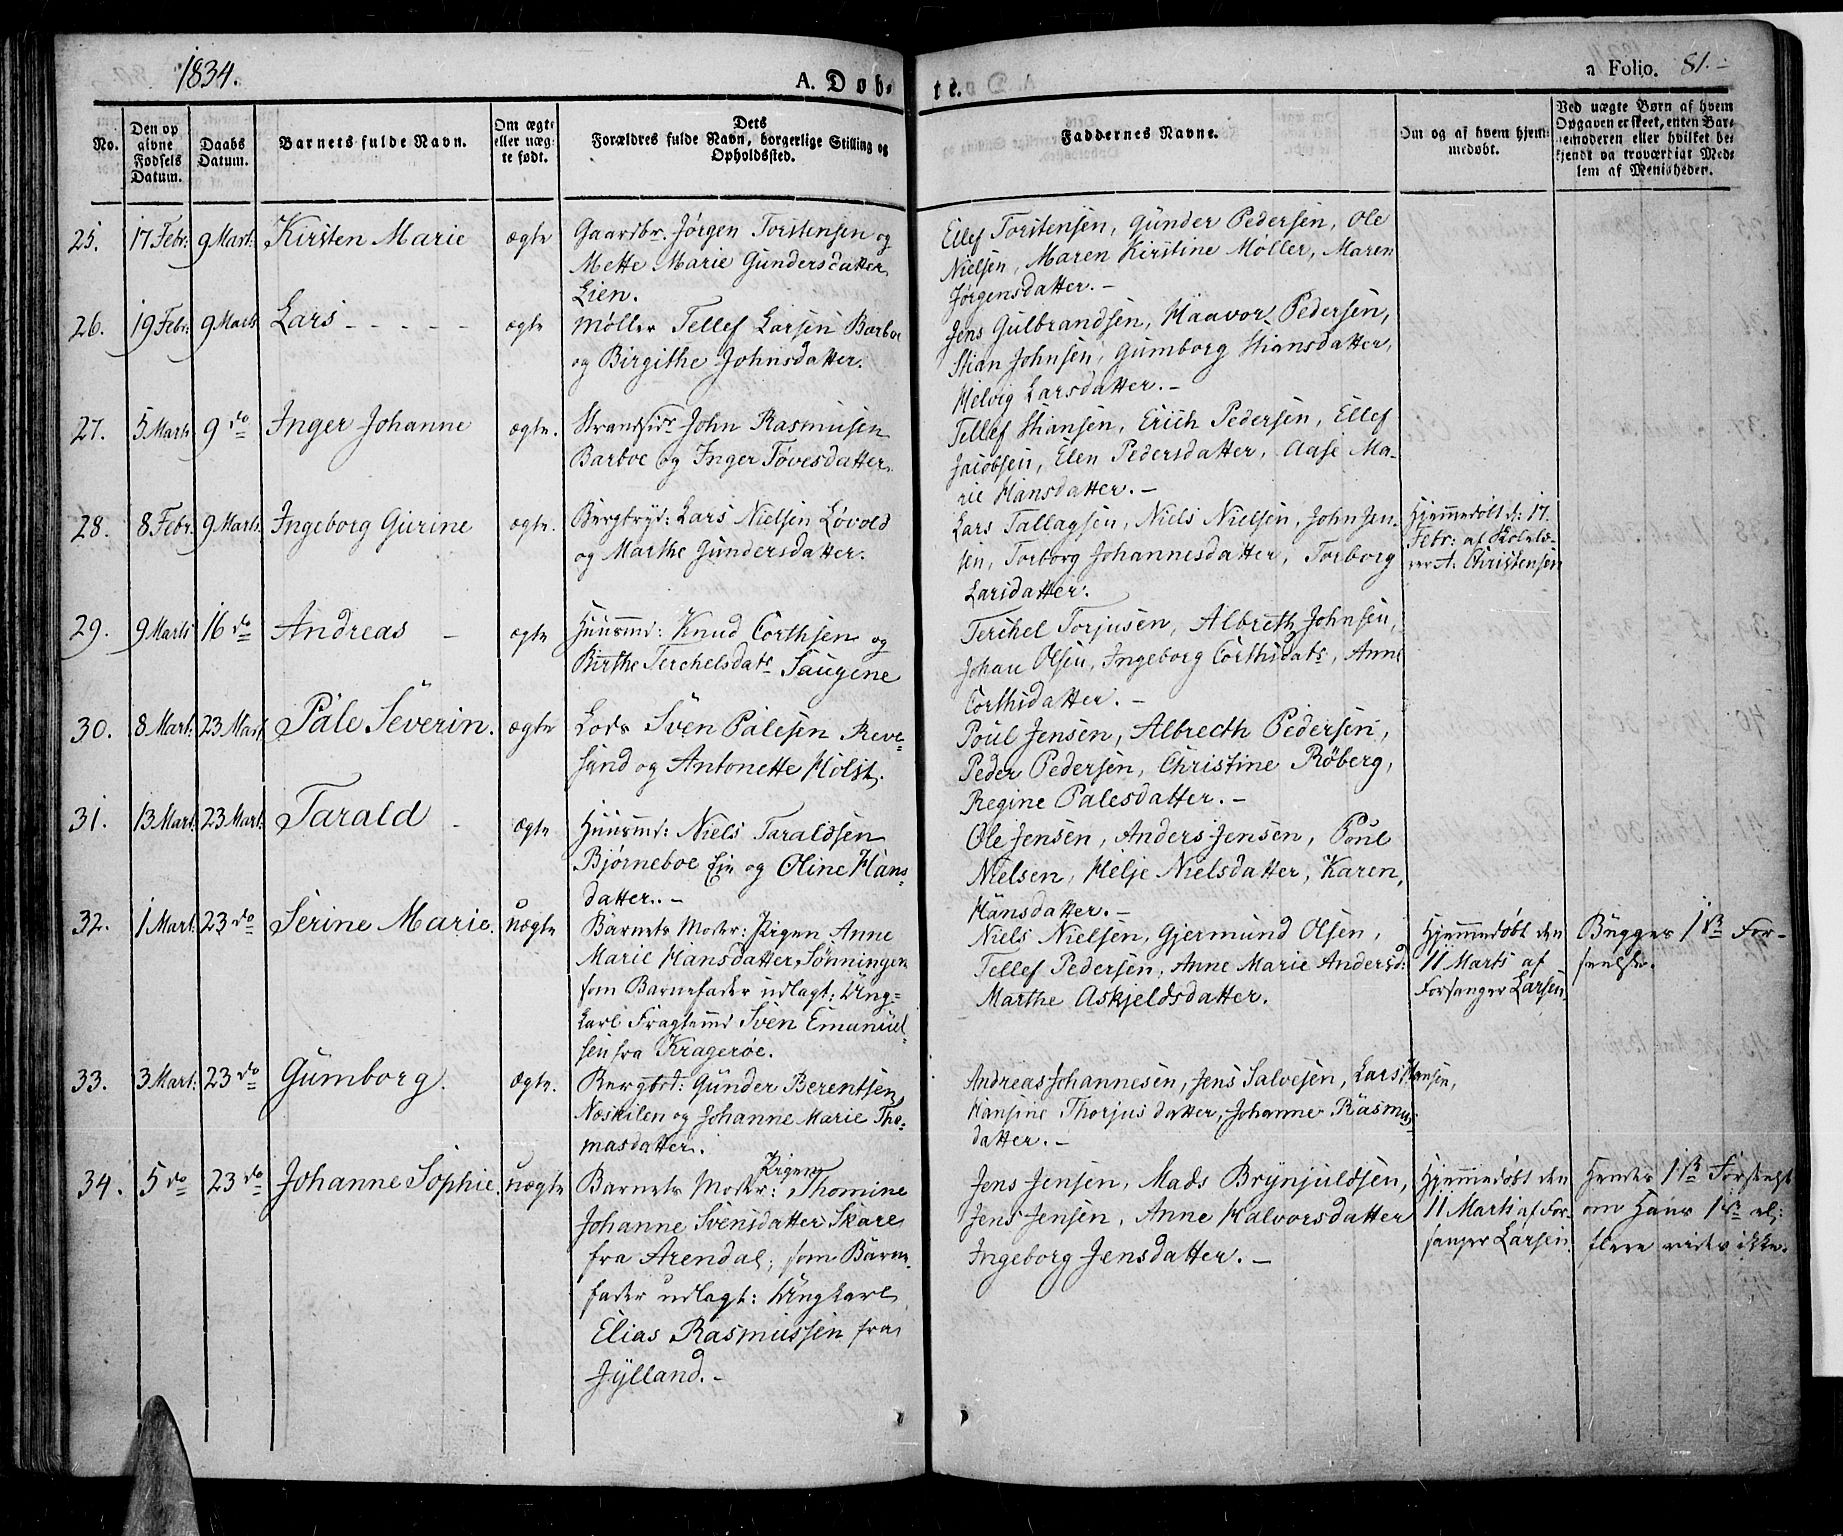 1834.
A. Døb-
te.
a Folio. 81.
No.
Den op
givne
Fødsels
Datum.
Daabs
Datum.
Barnets fulde Navn.
Om ægte
eller uæg-
te født.
Dets
Forældres fulde Navn, borgerlige Stilling og
Opholdssted.
Faddernes Navne.
Om og af hvem hjem-
medøbt.
Ved uægte Børn af hvem
Opgaven er skeet, enten Bar-
nemoderen eller hvilket be-
kjendt og troværdigt Med-
lem af Menigheden.
25. 17 Febr: 9 Mart: Kirsten Marie ægte
Gaardbr. Jörgen Torstensen og
Mette Marie Gundersdatter
Lien.
Ellef Torstensen, Gunder Pedersen, Ole
Nielsen, Maren Kirstine Møller, Maren
Jørgensdatter. -
26. 19 Febr: 9 Marts Lars - - - - - ægte
Møller Tellef Larsen Barboe
og Birgithe Johnsdatter.
Jens Gulbrandsen, Haavor Pedersen,
Stian Johnsen, Gumborg Stiansdatter,
Helvig Larsdatter. -
27. 5 Marts 9 do Inger Johanne ægte.
Strandsidr John Rasmusen
Barboe og Inger Tovesdatter.
Tellef Stiansen, Erich Pedersen, Ellef
Jacobsen, Elen Pedersdatter, Aase Ma-
rie Hansdatter. -
28. 8 Febr: 9 Marts Ingeborg Gurine ægte.
Bergbryd: Lars Nielsen Løvold
og Marthe Gundersdatter.
Lars Tallagsen, Niels Nielsen, John Jen-
sen, Torborg Johannesdatter, Torborg
Larsdatter.
Hjemmedøbt d: 17.
Febr: af Skolelæ-
rer A: Christensen
29. 9 Marts 16 do Andreas - ægte
Huusmd: Knud Corthsen og
Birthe Terchelsdatr Saugene
Terchel Torjusen, Albreth Johnsen,
Johan Olsen, Ingeborg Corthsdatr, Anne
Corthsdatter. -
30. 8 Mart: 23 Mart Pale Severin. ægte
Lods Sven Palesen Reve-
sand og Antonette Holst.
Poul Jensen, Albrecth Pedersen,
Peder Pedersen, Christine Röberg,
Regine Palesdatter. -
31. 13 Mart: 23 Mart: Tarald - ægte
Huusmd: Niels Taraldsen
Bjørneboe Eie og Oline Hans-
datter. -
Ole Jensen, Anders Jensen, Poul
Nielsen, Helje Nielsdatter, Karen,
Hansdatter. -
32. 1 Mart: 23 do Serine Marie. uægte
Barnets Moder: Pigen Anne
Marie Hansdatter, Sønningen
som Barnefader udlagt: Ung-
karl Fragtemd Sven Emanuel-
sen fra Kragerøe.
Niels Nielsen, Gjermund Olsen,
Tellef Pedersen, Anne Marie Andersd:
Marthe Askjeldsdatter.
Hjemmedøbt den
11 Marts af
Forsanger Larsen.
Begges 1ste For-
seelse.
33. 3 Mart: 23 do Gumborg. Ægte.
Bergbd: Gunder Berentsen
Næskilen og Johanne Marie Tho-
masdatter.
Andreas Johannesen, Jens Salvesen, Lars Hansen,
Hansine Thorjusdatter, Johanne Rasmus-
datter. -
34. 5 do 23 do Johanne Sophie. uægte
Barnets Moder: Pigen Thomine
Johanne Svensdatter Skare
fra Arendal; som Barne-
fader udlagt: Ungkarl
Elias Rasmussen fra
Jylland. -
Jens Jensen, Mads Brynjuldsen,
Jens Jensen, Anne Halvorsdatter
Ingeborg Jensdatter. -
Hjemmedøbt den
11 Marts af For-
sanger Larsen.
Hendes 1ste Forseelse
om Hans 1ste el:
flere vides ikke.